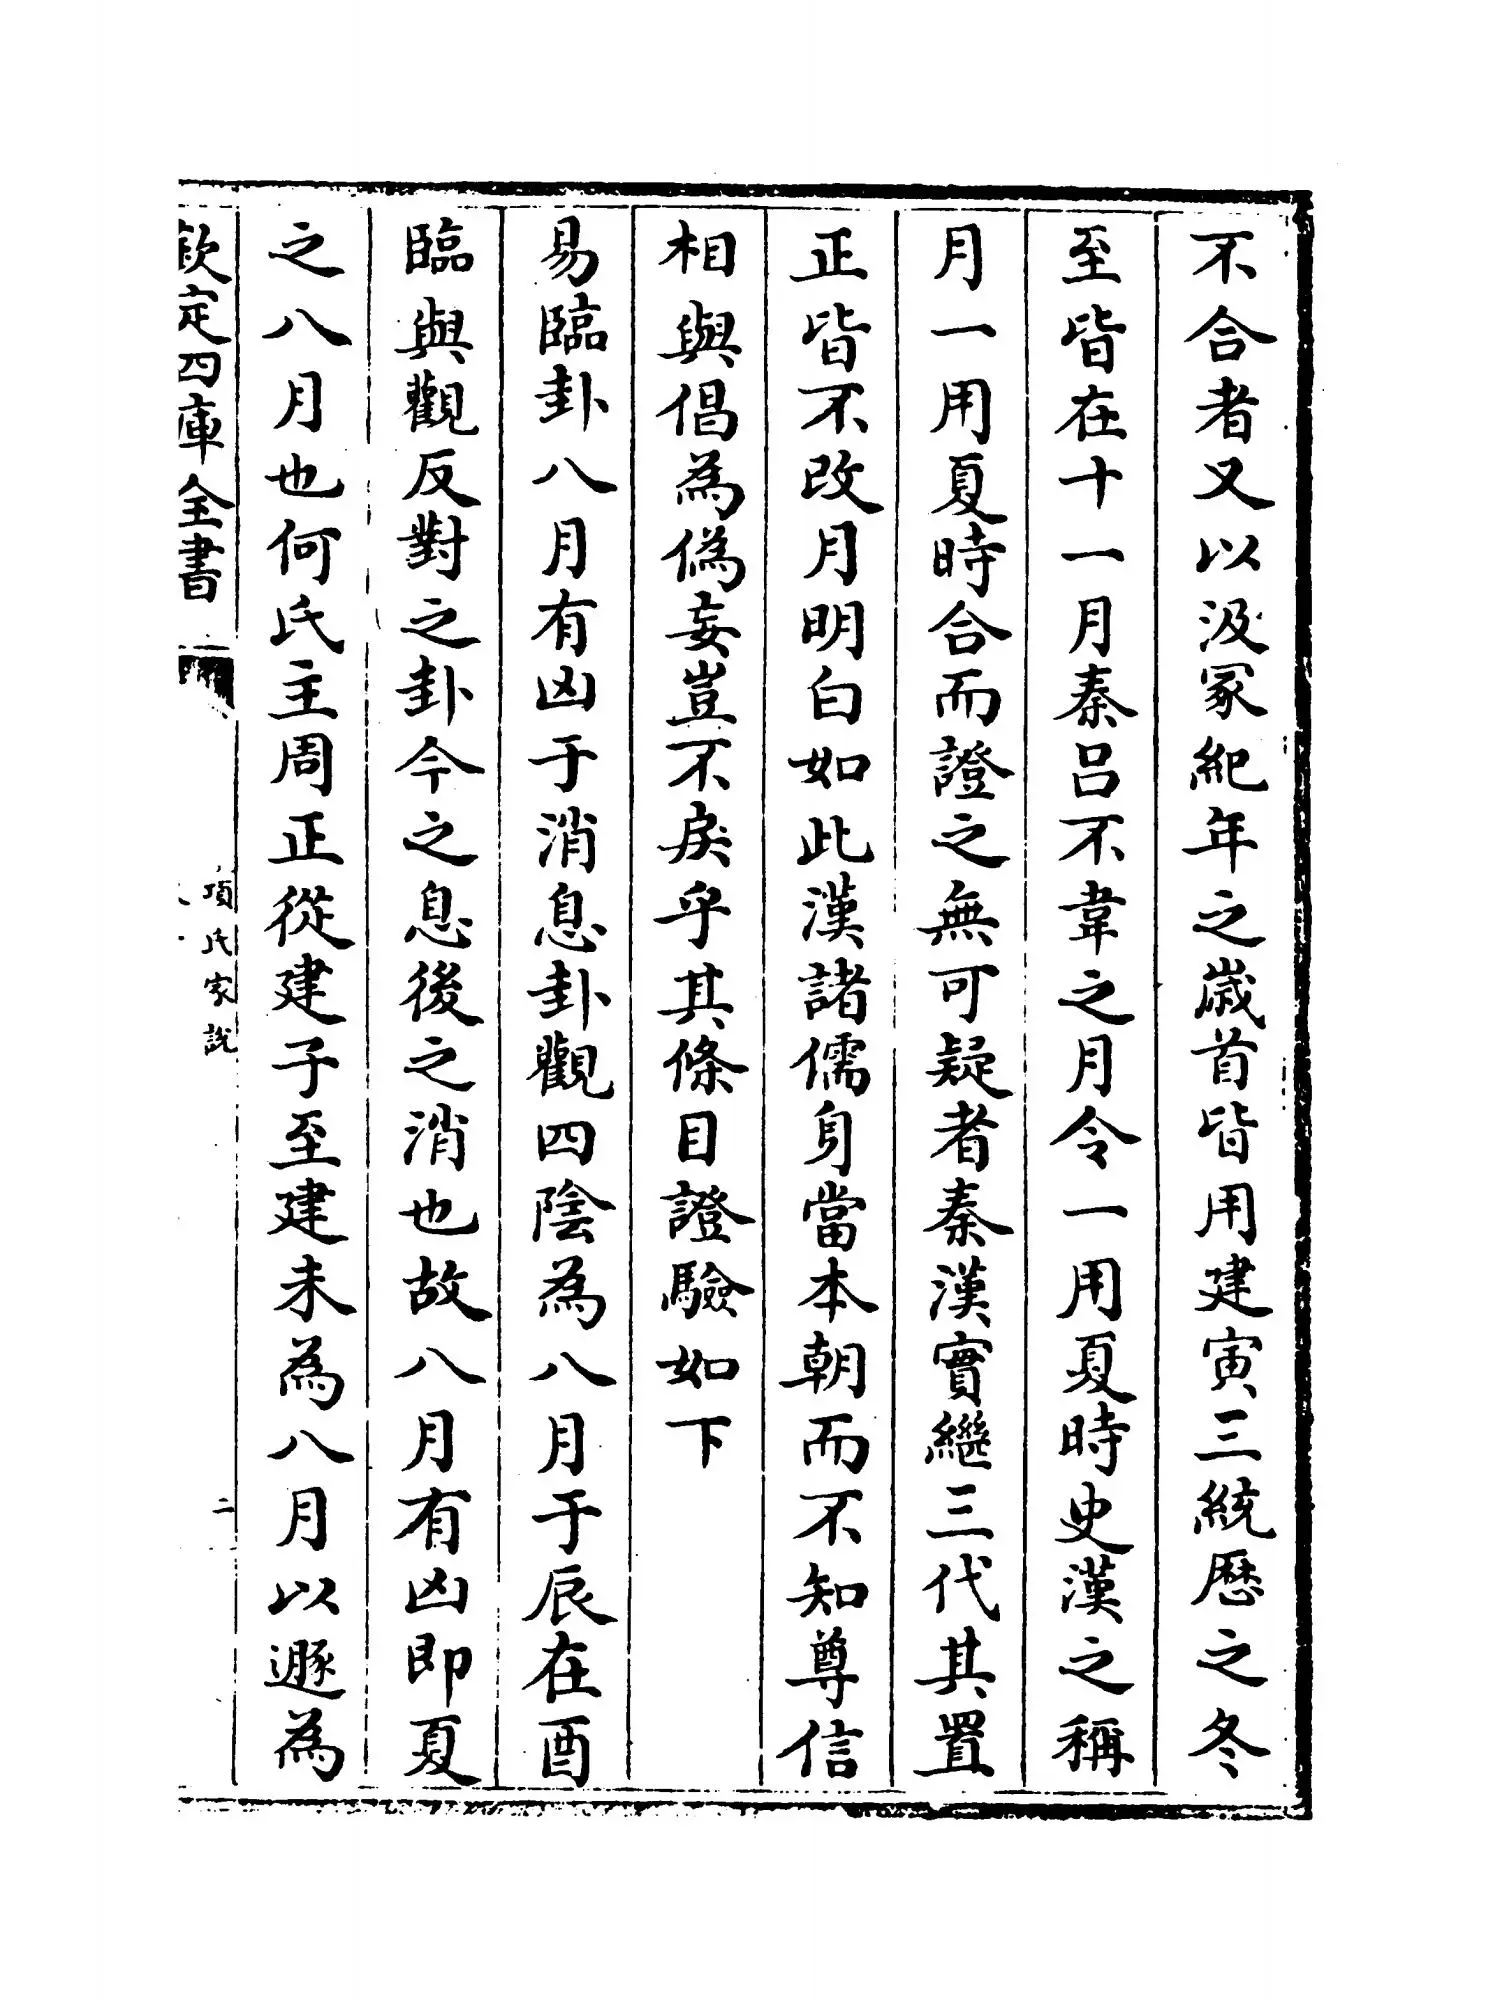 不合者又以汲冢紀年之歳首皆用建寅三統歴之冬
至皆在十一月秦吕不韋之月令一用夏時史漢之稱
月一用夏時合而證之無可疑者秦漢實繼三代其置
正皆不改月明白如此漢諸儒身當本朝而不知尊信
相與倡為偽妄豈不戾乎其條目證驗如下
易臨卦八月有凶于消息卦觀四陰為八月于辰在酉
臨與觀反對之卦今之息後之消也故八月有凶即夏
之八月也何氏主周正從建子至建未為八月以遯為
欽定四庫全書
項氏家説
二